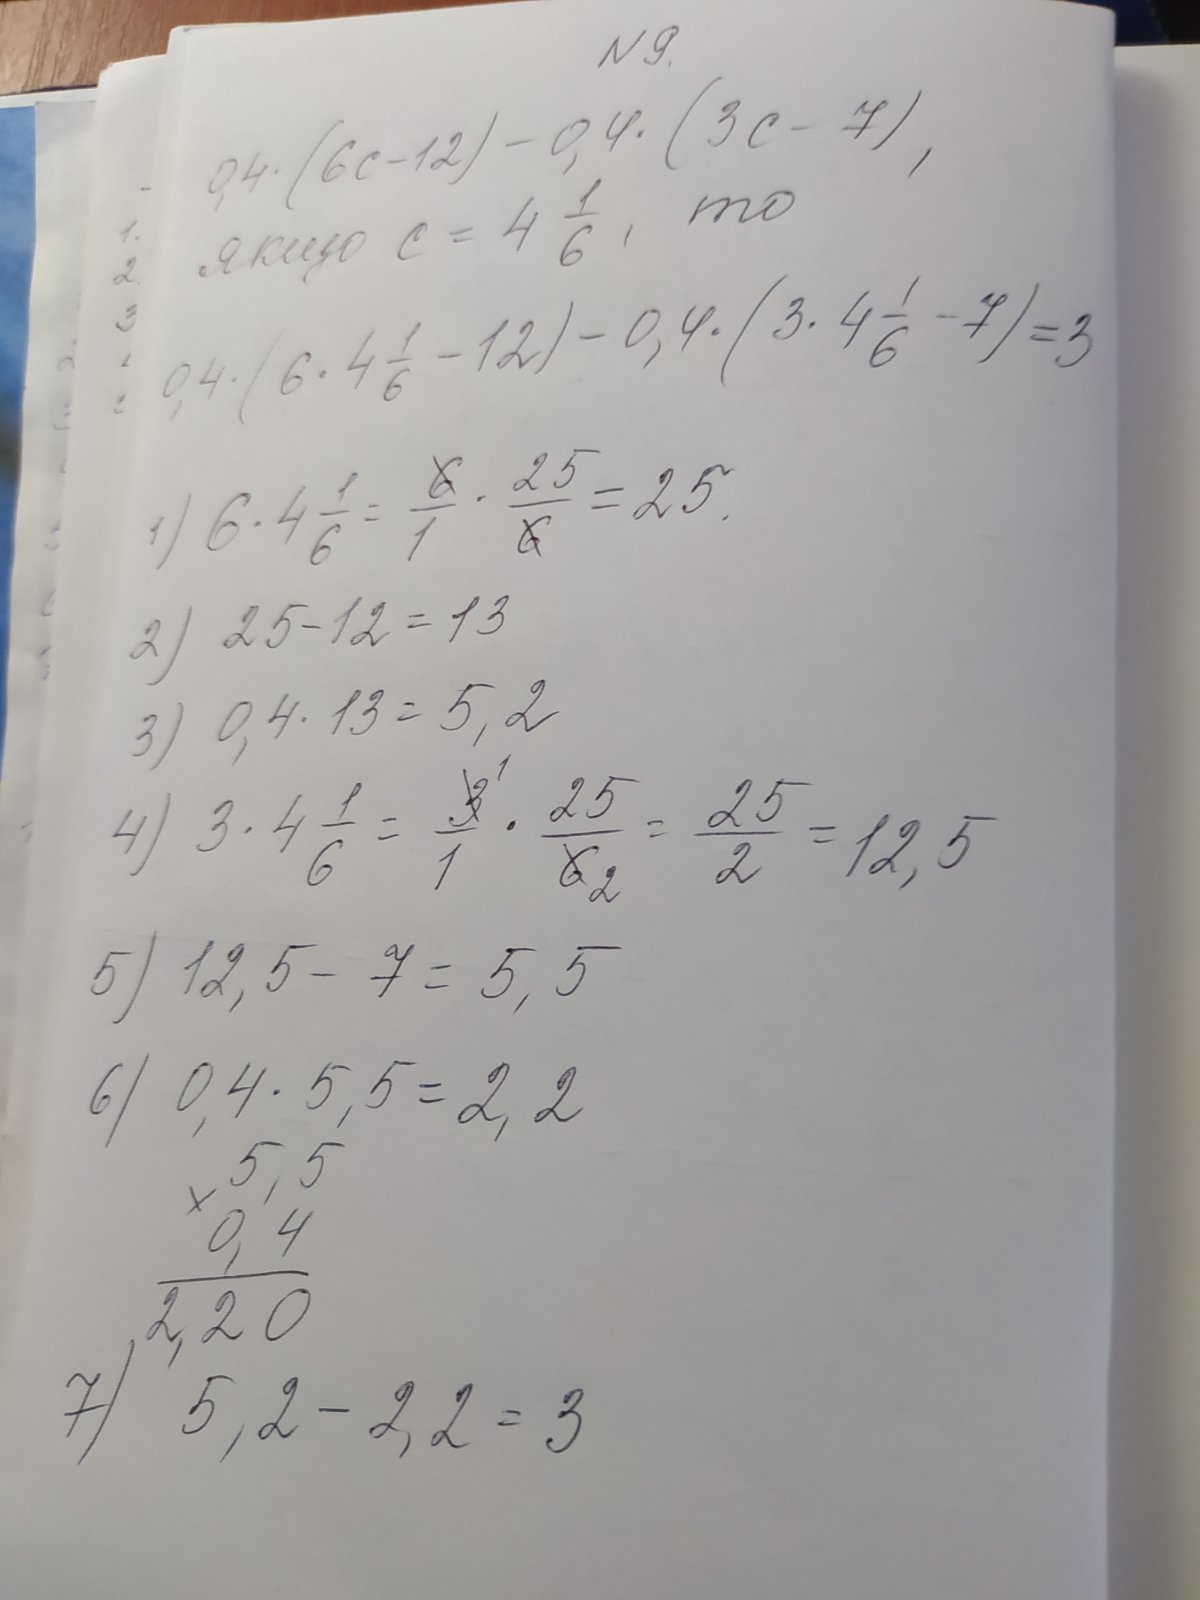 N 9.
0,4·(6c-12)-0,4·(3c-7),
якщо c = 4 1/6, то
0,4·(6·4 1/6-12)-0,4·(3·4 1/6-7)=3
1) 6·4 1/6 = 6/1 · 25/6 = 25.
2) 25-12=13
3) 0,4·13=5,2
4) 3·4 1/6 = 3 1/1 · 25/6 2 = 25/2 = 12,5
5) 12,5-7=5,5
6) 0,4·5,5=2,2
5,5
×
0,4
2,20
7) 5,2-2,2=3
1.
2.
3